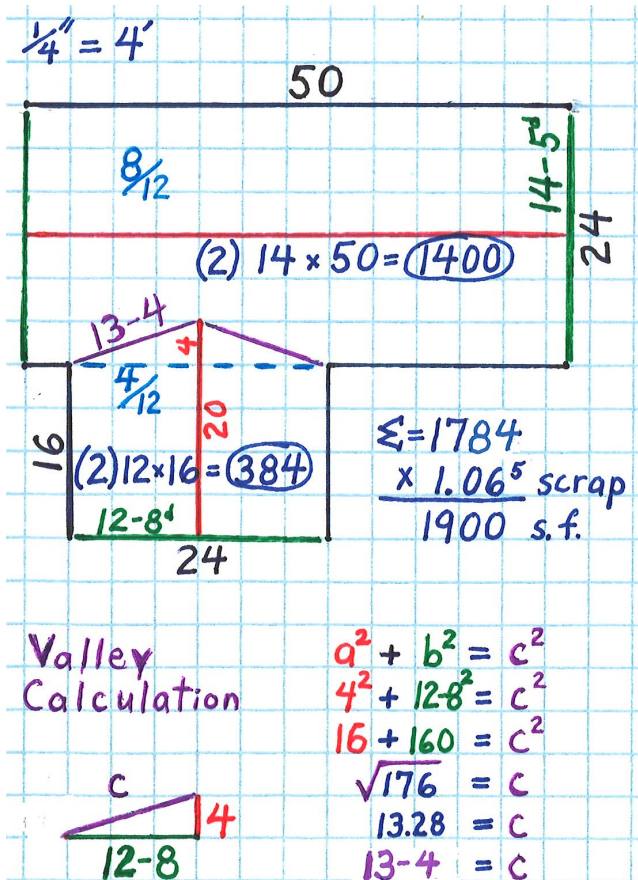 1/4" = 4'
50
8/12
14-5ᵈ
24
(2) 14 × 50 = 1400
13-4
4
4/12
20
16
(2) 12×16 = 384
12-8ᵈ
24
Σ = 1784
× 1.06⁵ scrap
1900 s.f.
Valley
Calculation
a² + b² = c²
4² + 12-8² = c²
16 + 160 = c²
√176 = c
13.28 = c
13-4 = c
c
4
12-8